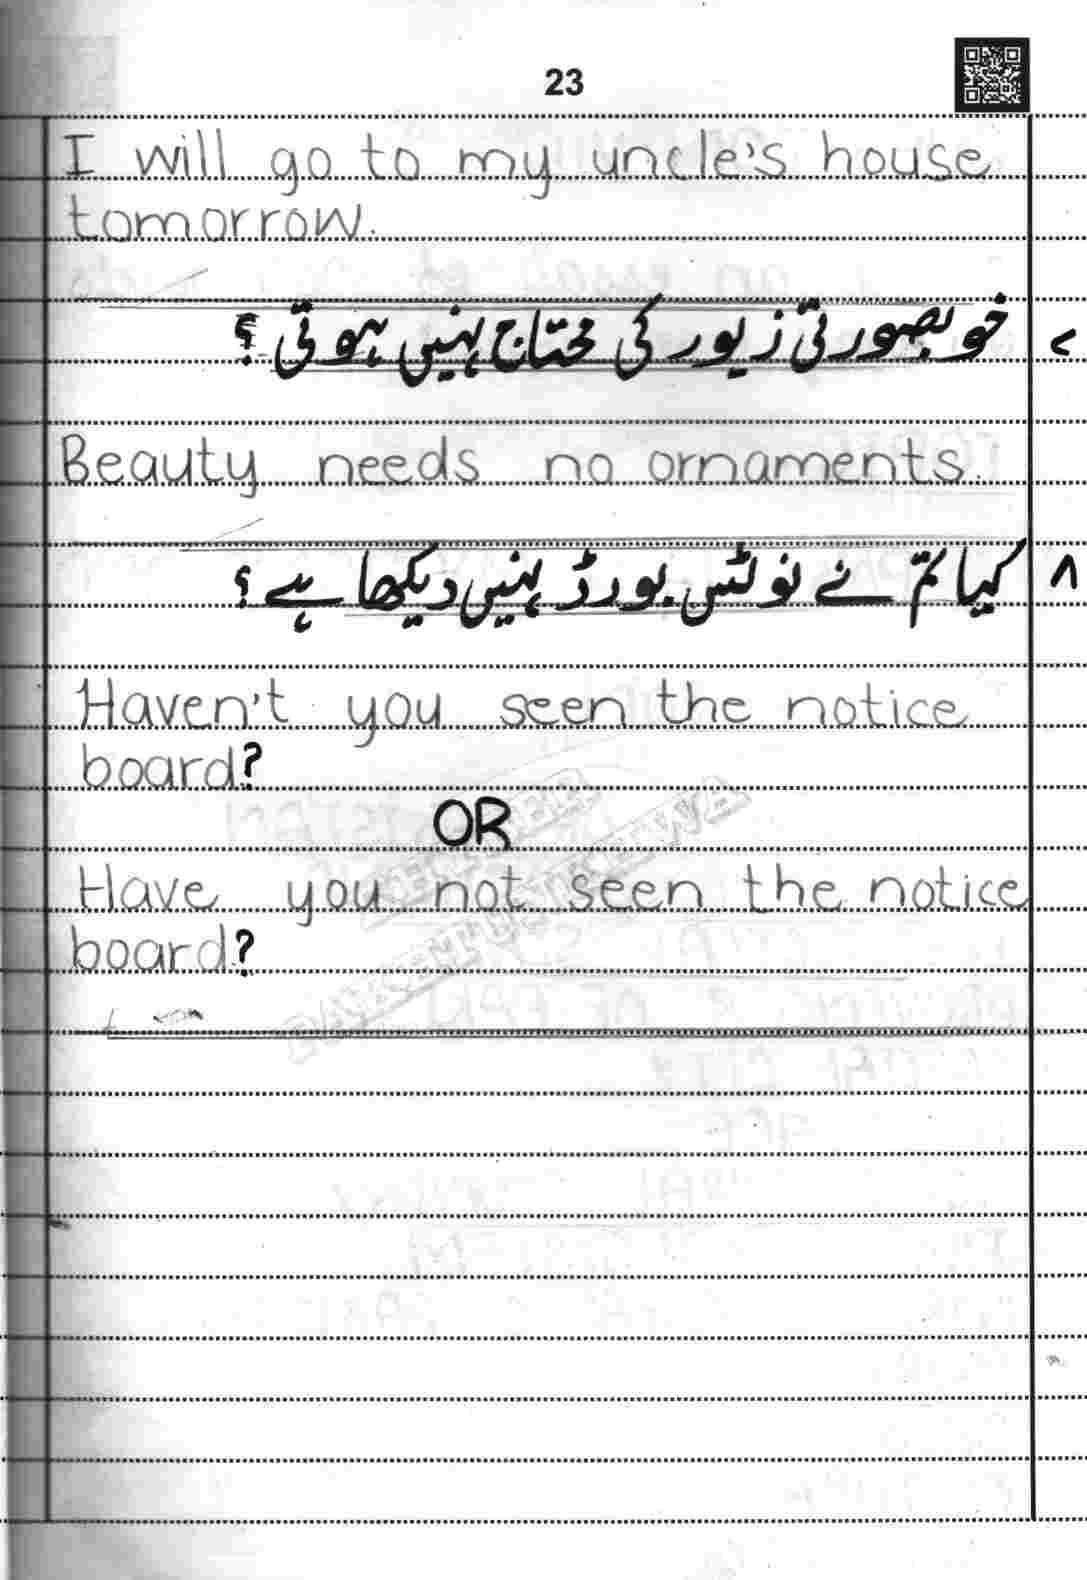 23
I will go to my uncle's house
tomorrow.
۷ خوبصورتی زیور کی محتاج نہیں ہوتی ؟
Beauty needs no ornaments.
۸ کیا تم نے نوٹس بورڈ نہیں دیکھا ہے ؟
Haven't you seen the notice
board?
OR
Have you not seen the notice
board?